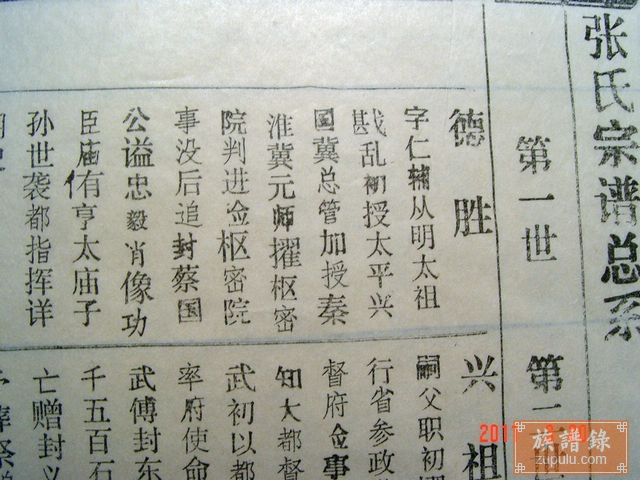 张氏宗谱总系
第一世
德胜
字仁辅从明太祖
戡乱初授太平兴
国冀总管加授秦
淮冀元师擢枢密
院判进佥枢密院
事没后追封蔡国
公谥忠毅肖像功
臣庙侑亨太庙子
孙世袭都指挥详
第二世
兴祖
嗣父职初
行省参政
督府佥事
知大都督
武初以都
率府使命
武傅封东
千五百石
亡赠封义
族譜錄
zupulu.com